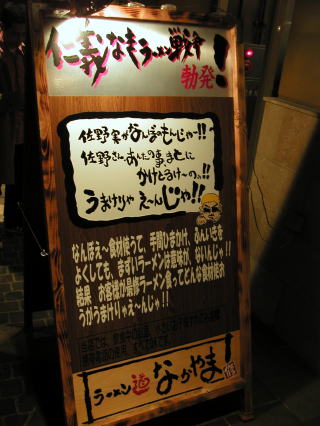 仁義なきラーメン戦争
勃発!
佐野実がなんぼのもんじゃ~!!
佐野さん、あんたの事、まじに
かけとるけ~のぉ!!
うまけりゃえ~んじゃ!!
なんぼえ~食材使うて、手間ひまかけ、ふんいきを
よくしても、まずいラーメンは意味が、ないんじゃ!!
結果 お客様が最終ラーメン食ってどんな食材使お
うがうまけりゃえ~んじゃ!!
当店では、
ラーメン道 なかやま